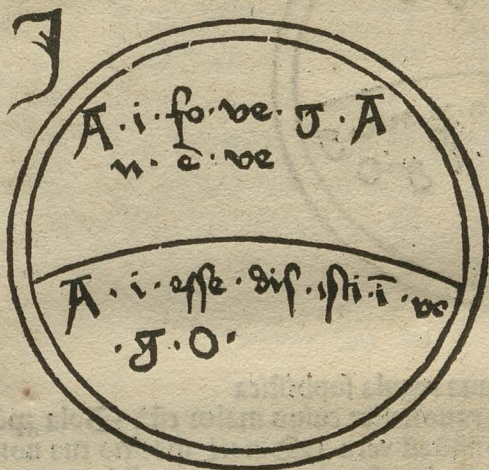 J
A · i · fo · ve · J · A
n · ē · ve
A · i · esse · dis · isti · ī · ve
· J · O ·